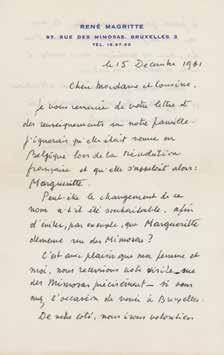 RENÉ MAGRITTE
97, RUE DES MIMOSAS, BRUXELLES 3
TÉL. 15.97.30
le 15 Décembre 1961
Chère Madame et Cousine,
Je vous remercie de votre lettre et
des renseignements sur notre famille
J'ignorais qu'elle était venue en
Belgique lors de la Révolution
française et qu'elle s'appelait alors :
Margueritte.
Peut-être le changement de ce
nom a-t-il été souhaitable, afin
d'éviter, par exemple, que Margueritte
demeure rue des Mimosas ?
C'est avec plaisir que ma femme et
moi, nous recevrions votre visite — rue
des Mimosas précisément — si vous
avez l'occasion de venir à Bruxelles.
De notre côté, nous irons volontiers